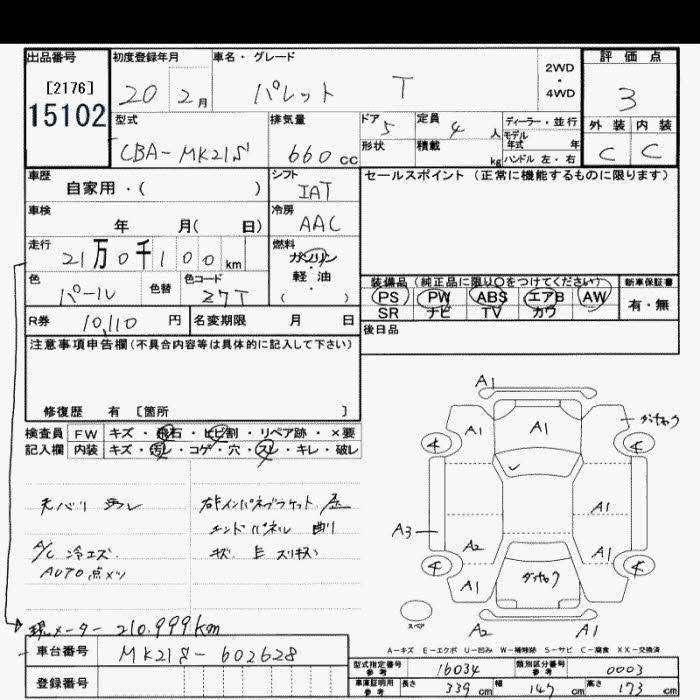 出品番号 初度登録年月 車名・グレード 2WD・4WD 評価点
[2176] 20 2月 パレット T 3
15102 型式 排気量 ドア 5 定員 4人 ディーラー・並行 外装 内装
CBA-MK21S 660cc 形状 積載 kg モデル年式 年 C C
ハンドル 左・右
車歴 シフト セールスポイント(正常に機能するものに限ります)
自家用・( ) IAT
車検 冷房
年 月( 日) AAC
走行 燃料
21万0千100km ガソリン・軽油
色 色替 色コード ( ) 装備品(純正品に限り○をつけてください) 新車保証書
パール Z7T PS PW ABS エアB AW 有・無
SR ナビ TV カワ
R券 10,110円 名変期限 月 日 後日品
注意事項申告欄(不具合内容等は具体的に記入して下さい)
修復歴 有 [箇所 ]
検査員 FW キズ・飛石・ヒビ割・リペア跡・×要
記入欄 内装 キズ・汚レ・コゲ・穴・スレ・キレ・破レ
天バリ 汚レ
A/C 冷エズ
AUTO点メツ
右Fインパネブラケット 歪
エンドパネル 曲リ
キズ 凹 スリキズ
現メーター 210.999km
車台番号 MK21S-602628
登録番号
A1
A1 A1 ダッチャク
A1
A3 A2 A1
A1 ダッチャク A1
スペア A2 A1
A-キズ E-エクボ U-凹み W-補修跡 S-サビ C-腐食 XX-交換済
型式指定番号 参考 16034 類別区分番号 参考 0003
車庫証明用 参考 長さ 339cm 幅 147cm 高さ 173cm